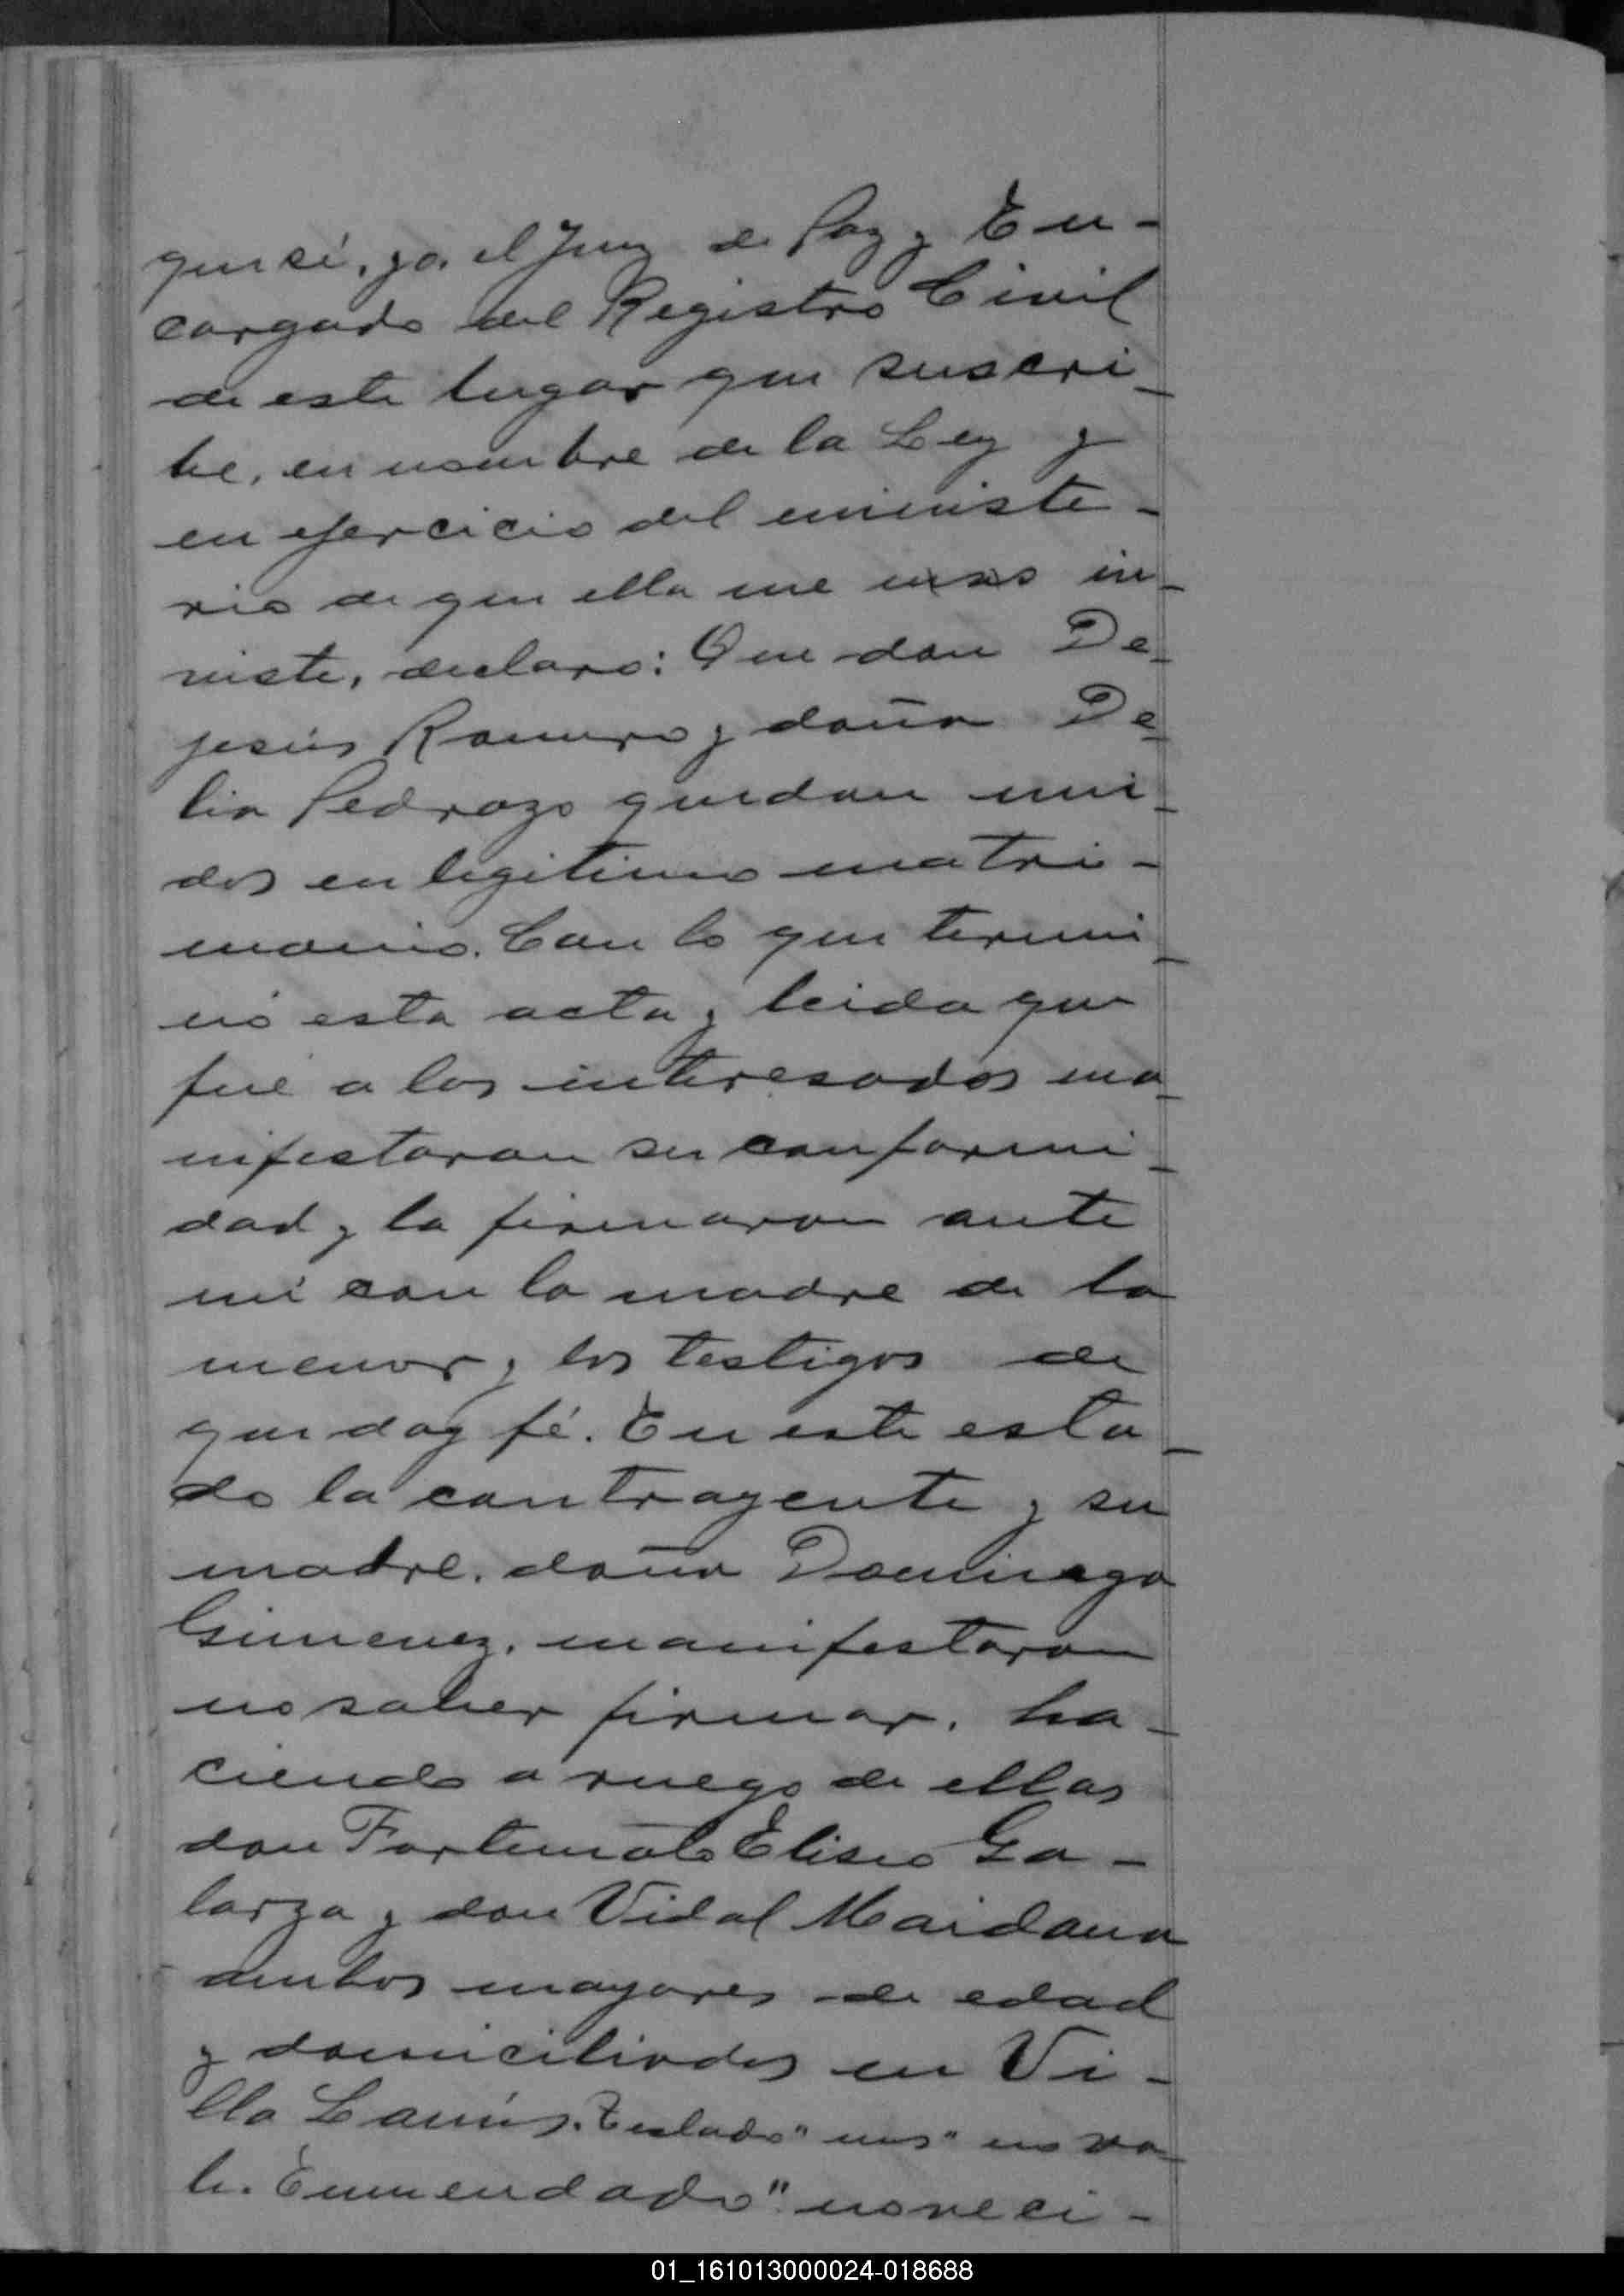 que sí, yo, el Juez de Paz y En-
cargado del Registro Civil
de este lugar que suscri-
be, en nombre de la Ley y
en ejercicio del ministe-
rio de que ella me in-
viste, declaro: Que don De-
jesús Romero y doña De-
lia Pedrozo quedan uni-
dos en legitimo matri-
monio. Con lo que termi-
nó esta acta y leida que
fué a los interesados ma-
nifestaron su conformi-
dad y la firmaron ante
mi con la madre de la
menor y los testigos de
que doy fé. En este esta-
do la contrayente y su
madre, doña Dominga
Gimenez, manifestaron
no saber firmar, ha-
ciendo a ruego de ellas
don Fortunato Eliseo Ga-
larza y don Vidal Maidana
ambos mayores de edad
y domiciliados en Vi-
lla Lanús. Testado " " no va-
le. Enmendado "noveci-
01_161013000024-018688